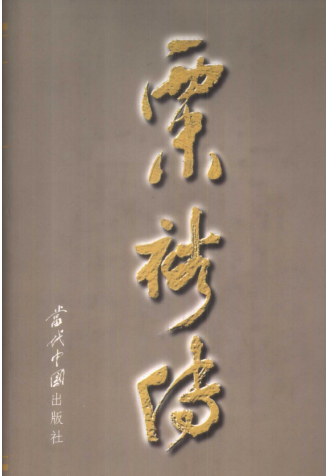 粟裕传
當代中國出版社